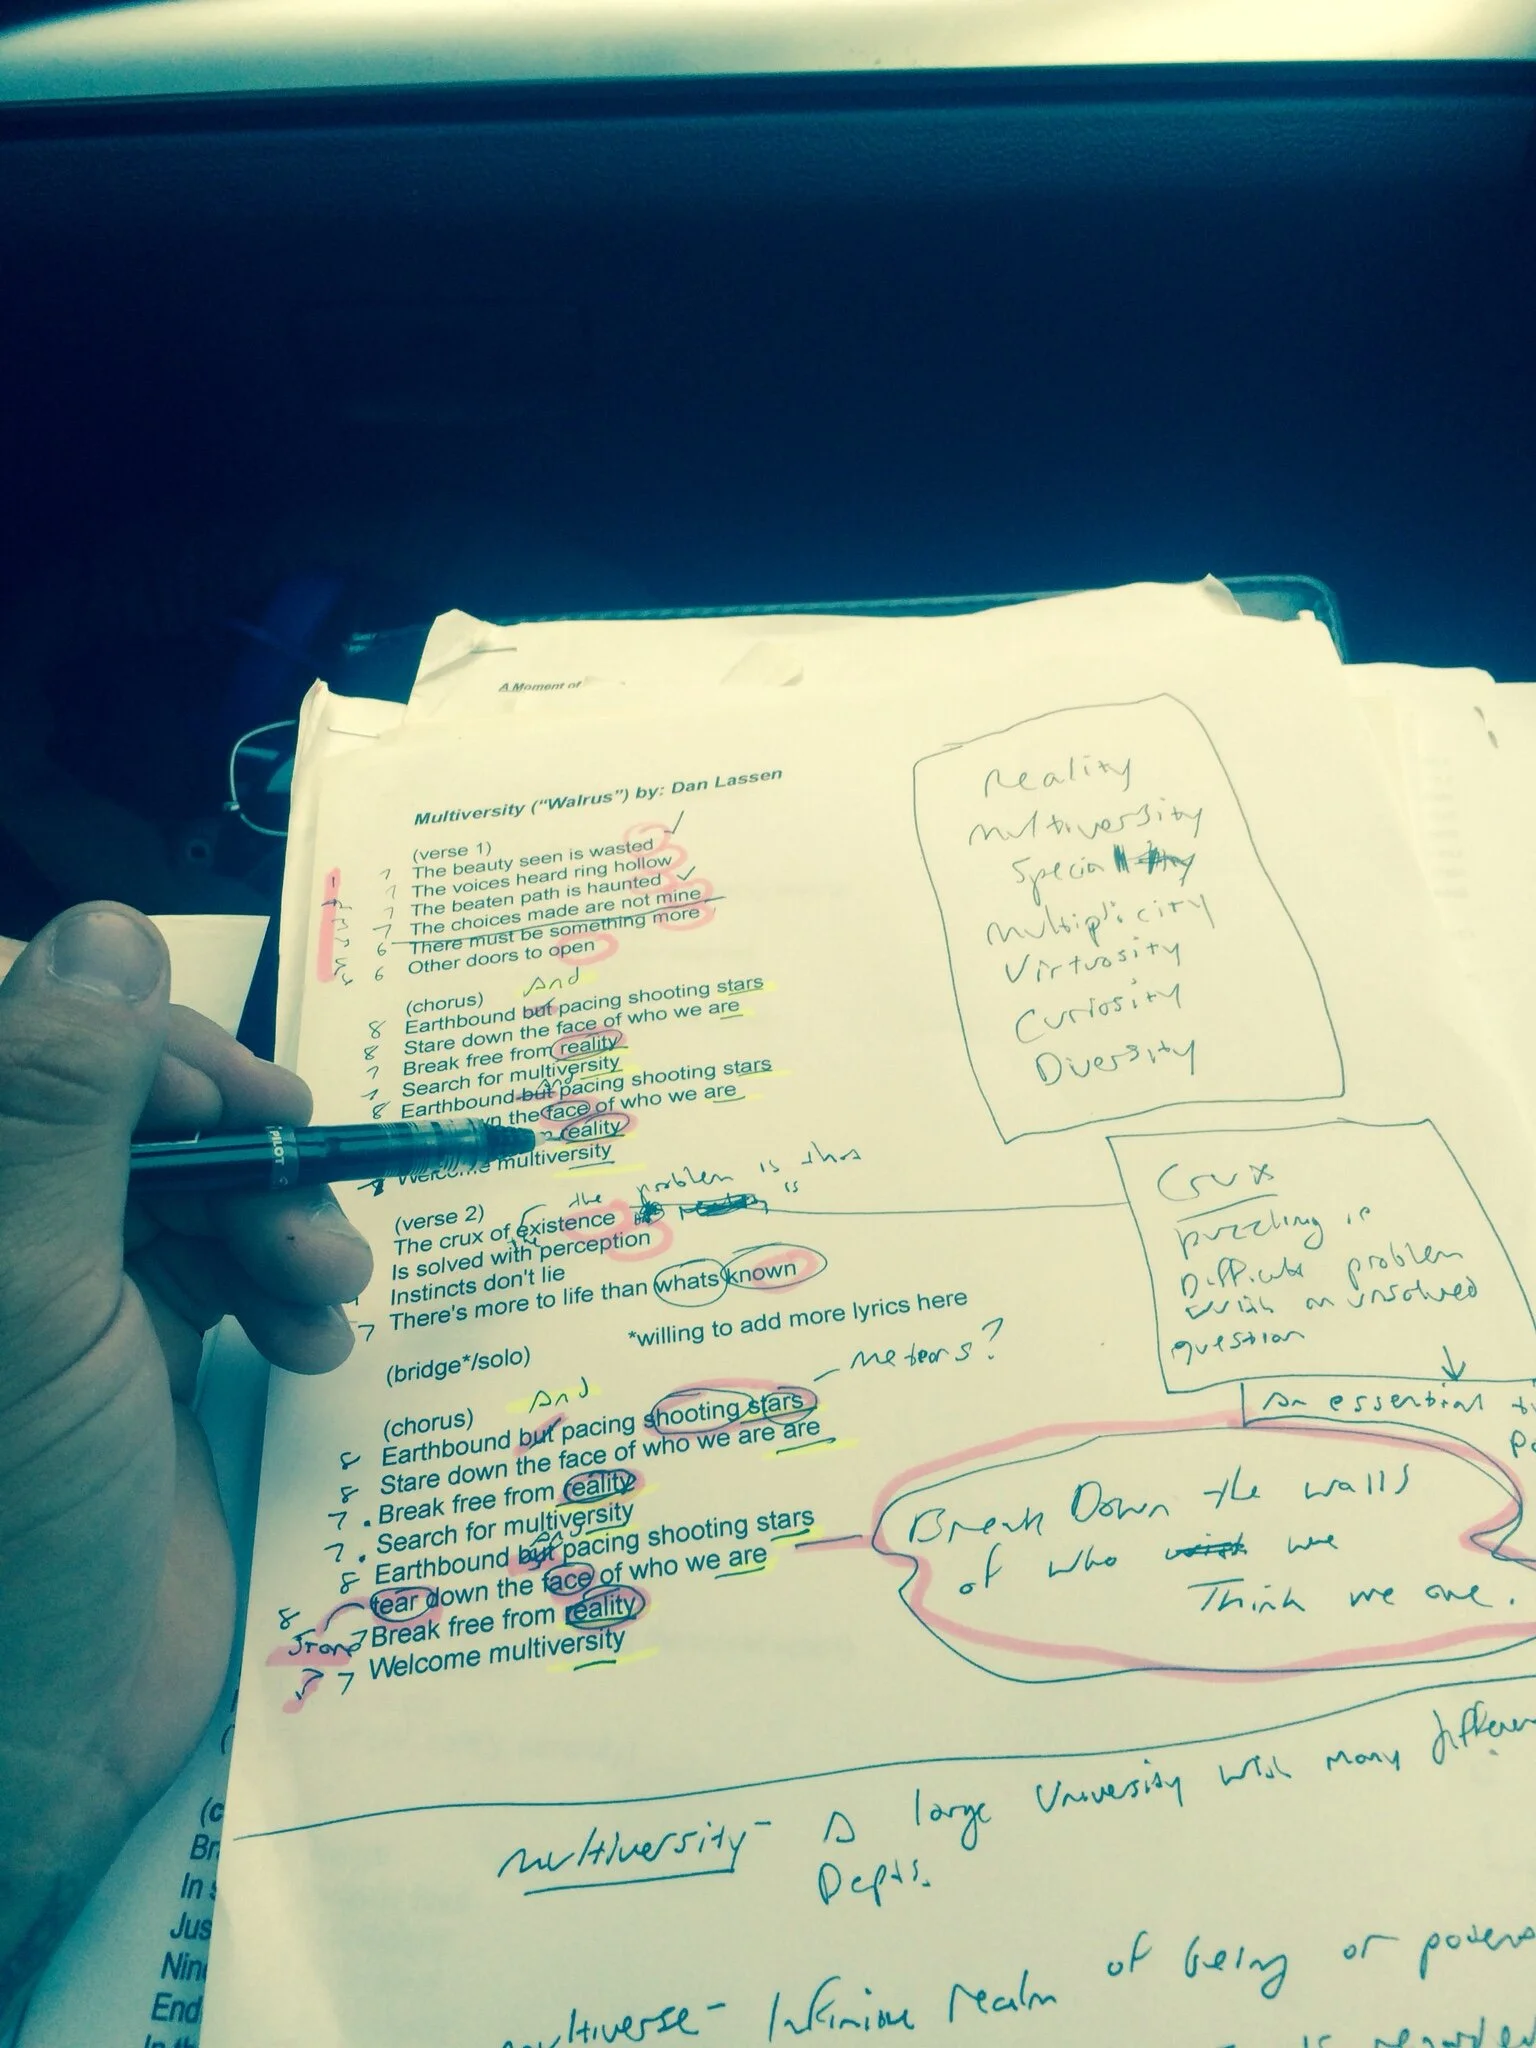 A Moment of
Multiversity ("Walrus") by: Dan Lassen
(verse 1)
7 The beauty seen is wasted
7 The voices heard ring hollow
7 The beaten path is haunted
7 The choices made are not mine
6 There must be something more
6 Other doors to open
And
(chorus)
8 Earthbound but pacing shooting stars
8 Stare down the face of who we are
7 Break free from reality
7 Search for multiversity
And
8 Earthbound but pacing shooting stars
the face of who we are
reality
Welcome multiversity
the problem is that
is
(verse 2)
The crux of existence
the
Is solved with perception
Instincts don't lie
7 There's more to life than whats known
*willing to add more lyrics here
(bridge*/solo)
meteors?
And
(chorus)
8 Earthbound but pacing shooting stars
8 Stare down the face of who we are are
7 . Break free from reality
7 . Search for multiversity
And
8 Earthbound but pacing shooting stars
8 tear down the face of who we are
7 Break free from reality
7 Welcome multiversity
reality
multiversity
Special
multiplicity
Virtuosity
Curiosity
Diversity
Crux
puzzling or
Difficult problem
an unsolved
question
An essential
Break Down the walls
of who we
Think we are.
multiversity - A large University with many
Depts.
Infinite realm of being or
PILOT
Br
In s
Jus
End